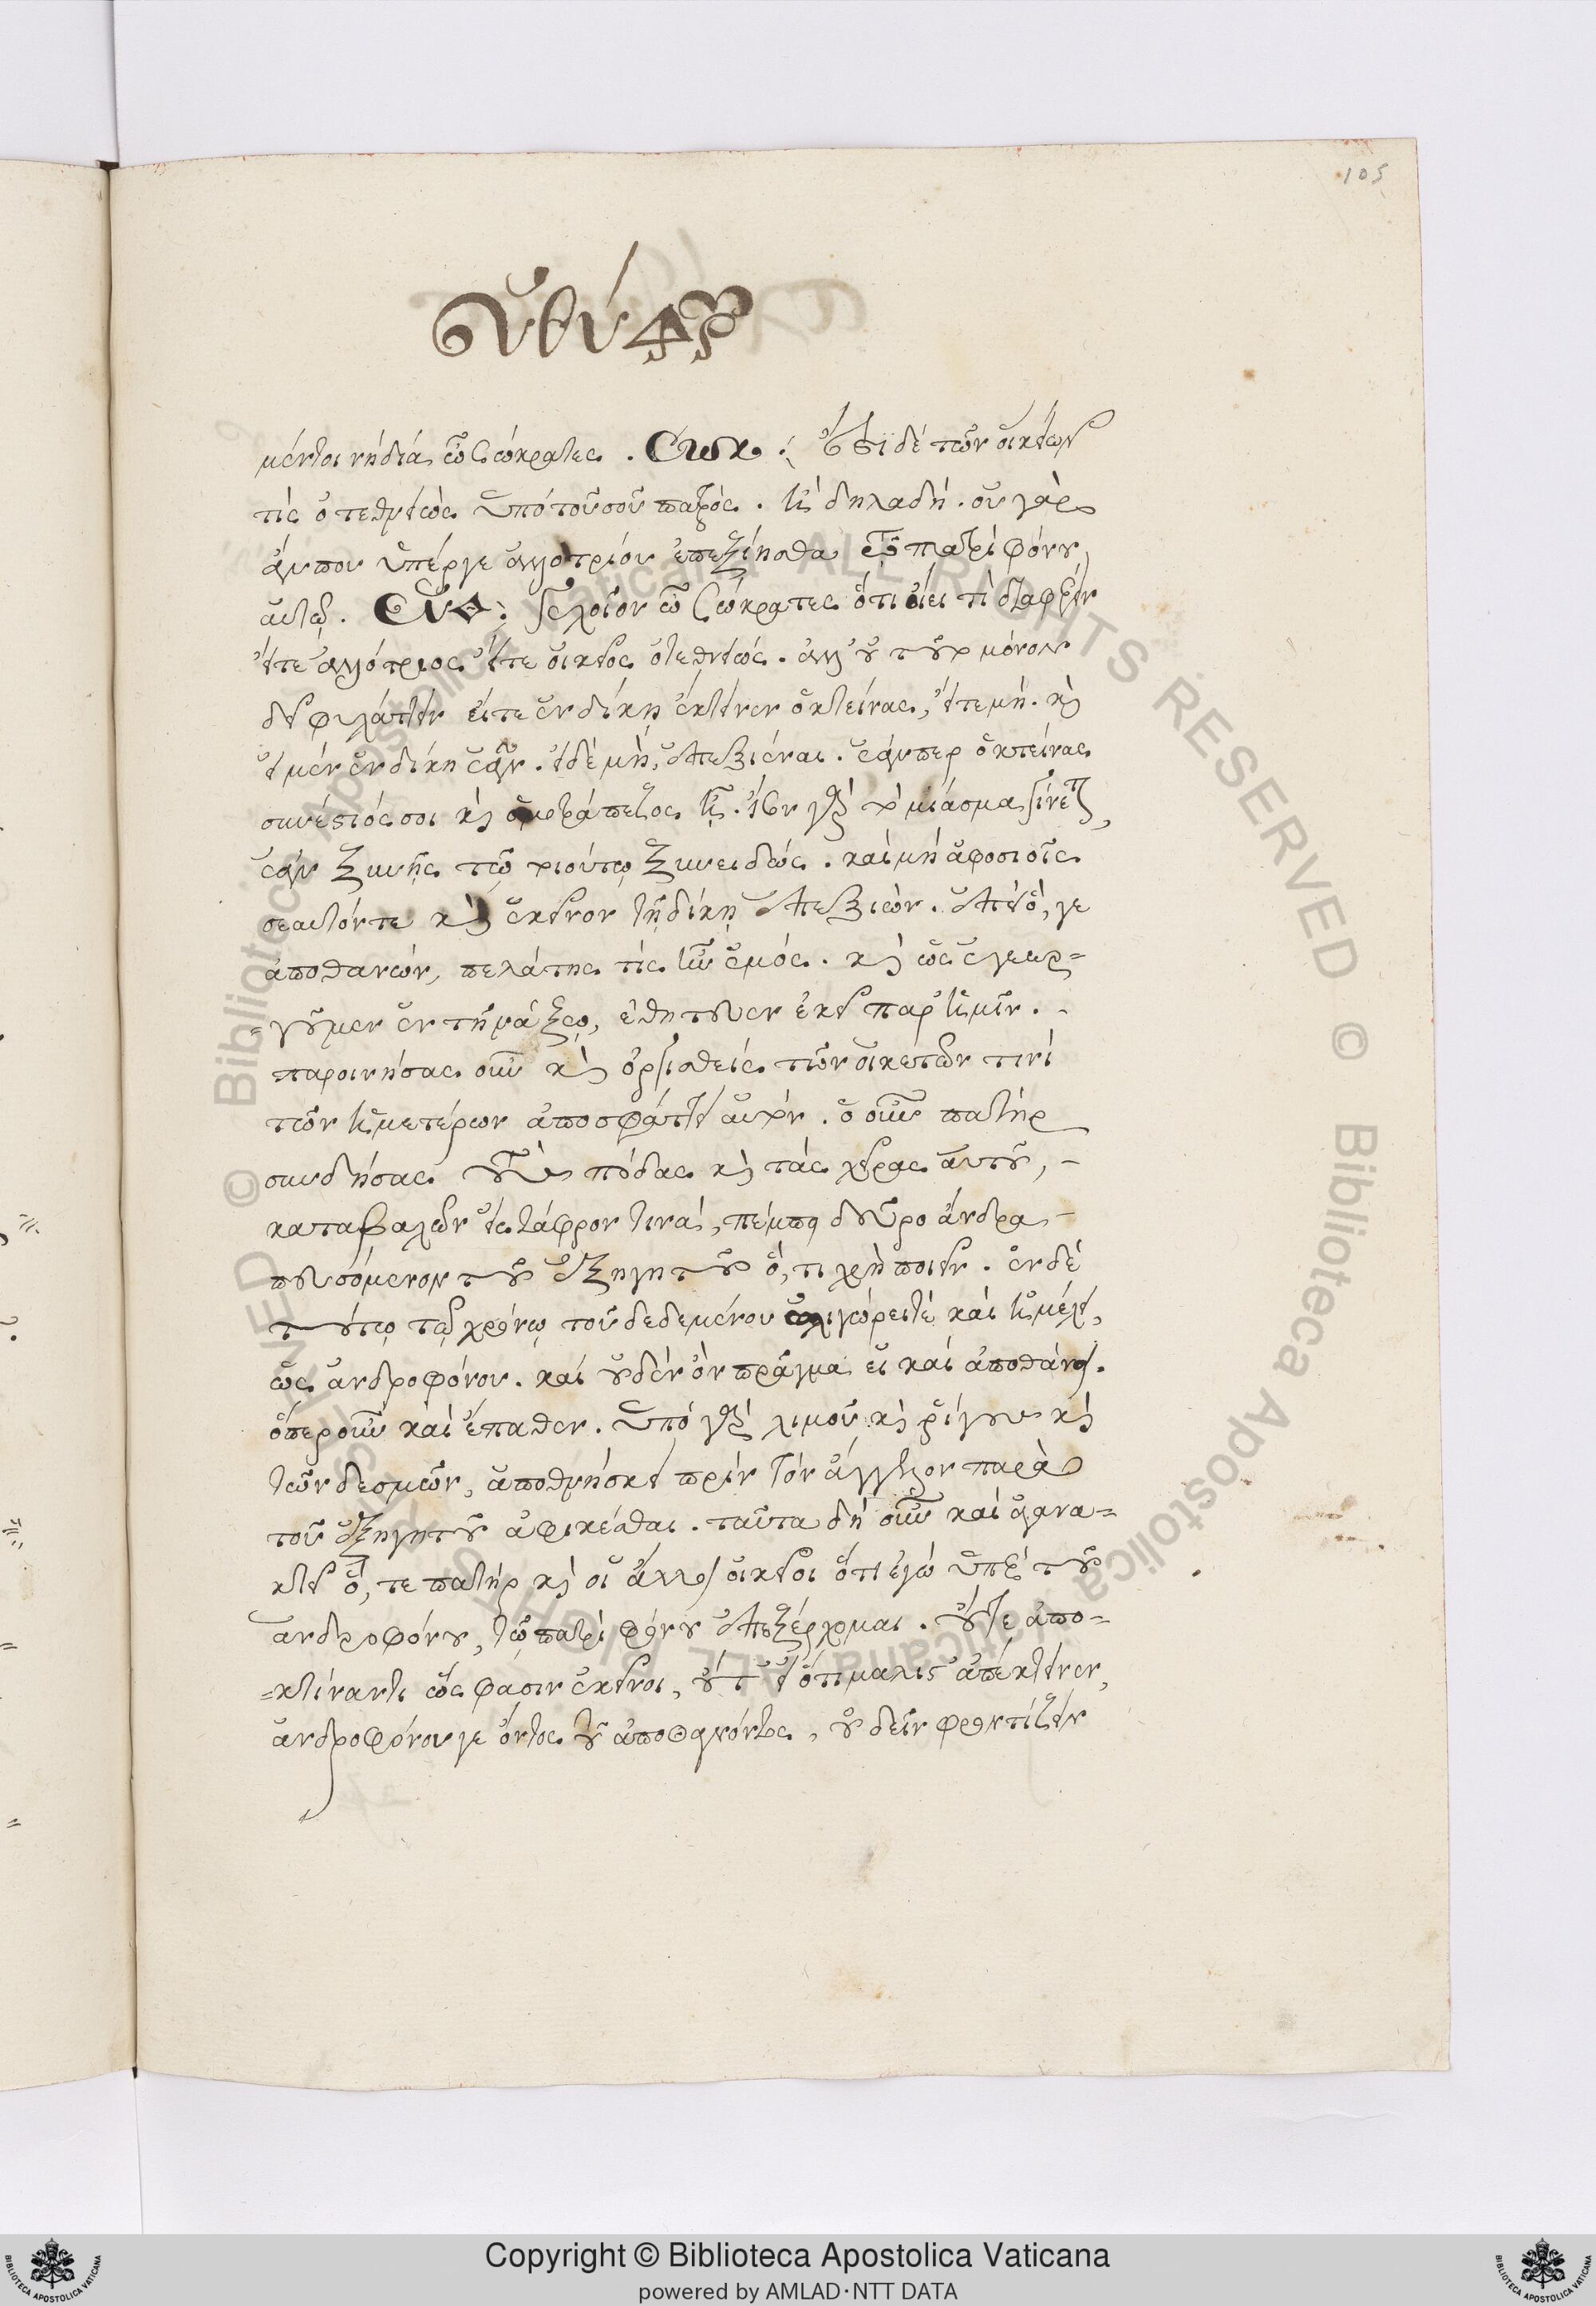 105
Εὐθύφρ
μέντοι νὴ δία ὦ Σώκρατες. Σωκ: ἔστι δὲ τῶν οἰκείων
τίς ὁ τεθνεὼς ὑπὸ τοῦ σοῦ πατρός. ἢ δηλαδή. οὐ γὰρ
ἄν που ὑπέρ γε ἀλλοτρίου ἐπεξίησθα τῷ πατρὶ φόνου
αὐτῷ. Εὐθ: γελοῖον ὦ Σώκρατες ὅτι οἴει τὶ διαφέρειν
εἴτε ἀλλότριος εἴτε οἰκεῖος ὁ τεθνεώς. ἀλλ' οὐ τοῦτο μόνον
δεῖ φυλάττειν εἴτε ἐν δίκῃ ἔκτεινεν ὁ κτείνας, εἴτε μή. καὶ
εἰ μὲν ἐν δίκῃ ἐᾶν. εἰ δὲ μή, ἐπεξιέναι. ἐάνπερ ὁ κτείνας
συνέστιός σοι καὶ ὁμοτράπεζος ᾖ. ἴσον γὰρ τὸ μίασμα γίνεται,
ἐὰν ξυνῇς τῷ τοιούτῳ ξυνειδώς. καὶ μὴ ἀφοσιοῖς
σεαυτόν τε καὶ ἐκεῖνον τῇ δίκῃ ἐπεξιών. ἐπεὶ ὅ, γε
ἀποθανών, πελάτης τίς ἦν ἐμός. καὶ ὡς ἐγεωρ=
=γοῦμεν ἐν τῇ νάξῳ, ἐθήτευεν ἐκεῖ παρ' ἡμῖν.
παροινήσας οὖν καὶ ὀργισθείς τῶν οἰκετῶν τινί
τῶν ἡμετέρων ἀποσφάττει αὐτόν. ὁ οὖν πατήρ
συνδήσας τοὺς πόδας καὶ τὰς χεῖρας αὐτοῦ,
καταβαλὼν εἰς τάφρον τινά, πέμπει δεῦρο ἄνδρα
πευσόμενον τοῦ ἐξηγητοῦ ὅ, τι χρὴ ποιεῖν. ἐν δὲ
τούτῳ τῷ χρόνῳ τοῦ δεδεμένου ὠλιγώρει τὲ καὶ ἠμέλει,
ὡς ἀνδροφόνου. καὶ οὐδὲν ὂν πρᾶγμα εἰ καὶ ἀποθάνοι.
ὅπερ οὖν καὶ ἔπαθεν. ὑπὸ γὰρ λιμοῦ καὶ ῥίγους καὶ
τῶν δεσμῶν, ἀποθνήσκει πρὶν τὸν ἄγγελον παρὰ
τοῦ ἐξηγητοῦ ἀφικέσθαι. ταῦτα δὴ οὖν καὶ ἀγανα=
κτεῖ ὅ, τε πατὴρ καὶ οἱ ἄλλοι οἰκεῖοι ὅτι ἐγὼ ὑπὲρ τοῦ
ἀνδροφόνου, τῷ πατρὶ φόνου ἐπεξέρχομαι. οὔτε ἀπο=
=κτείναντι ὥς φασιν ἐκεῖνοι, οὔτ' εἰ ὅτι μάλιστ' ἀπέκτεινεν,
ἀνδροφόνου γε ὄντος τοῦ ἀποθανόντος, οὐ δεῖν φροντίζειν
Copyright © Biblioteca Apostolica Vaticana
powered by AMLAD·NTT DATA